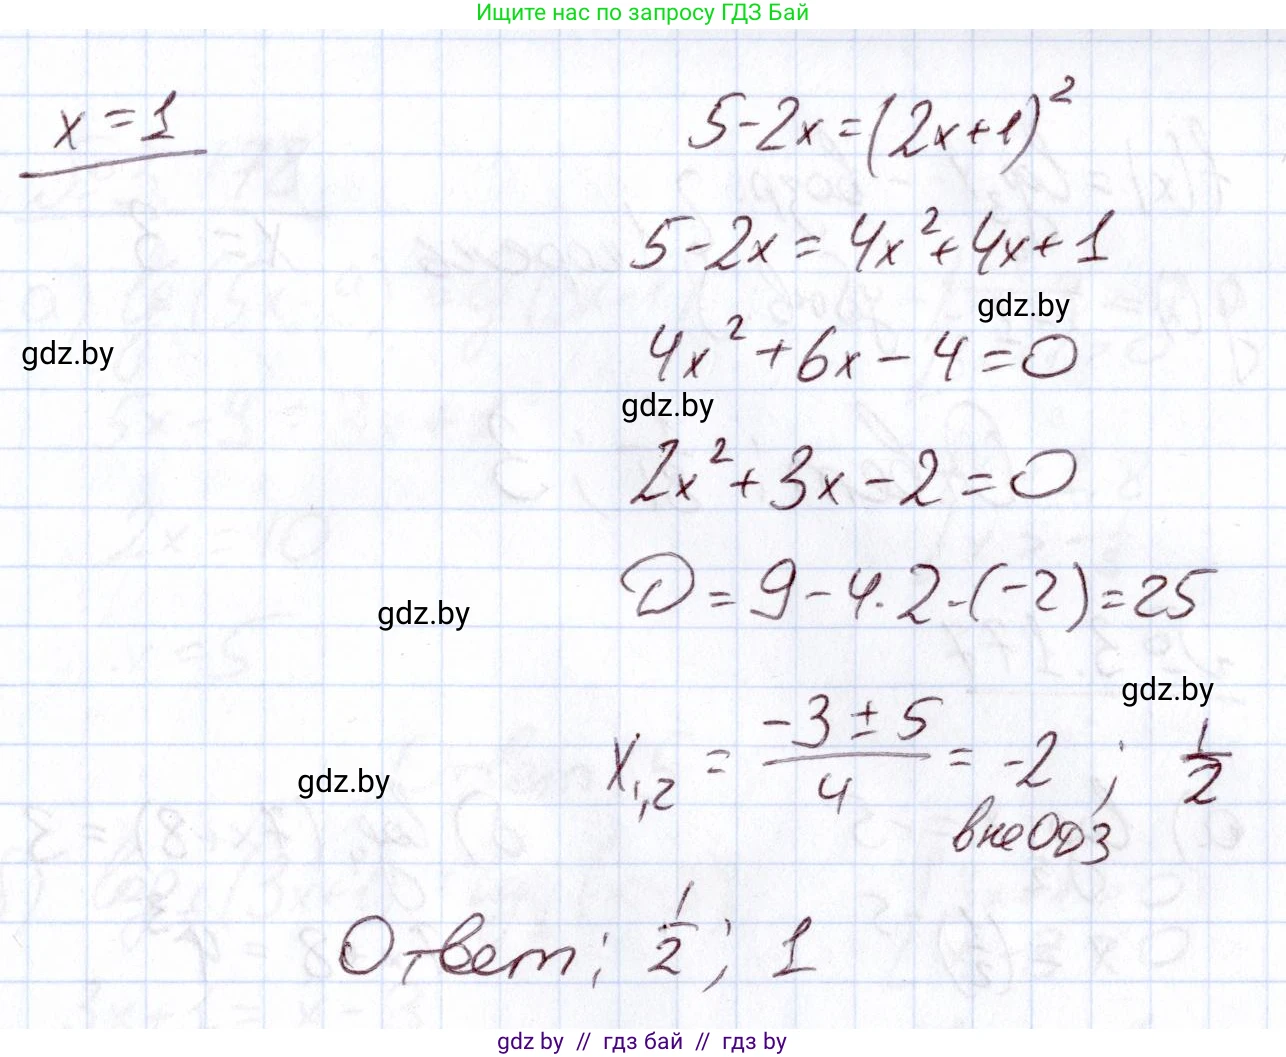 Ищите нас по запросу ГДЗ Бай
x = 1
5-2x=(2x+1)²
5-2x = 4x²+4x+1
gdz.by
gdz.by
4x²+6x-4=0
gdz.by
2x²+3x-2=0
D=9-4·2·(-2)=25
gdz.by
gdz.by
x₁,₂ = (-3±5)/4 = -2 ; 1/2
gdz.by
вне ОДЗ
Ответ: 1/2; 1
gdz by // гдз бай // гдз by